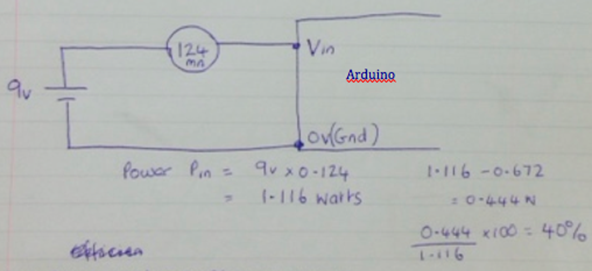 124
mA
Vin
Arduino
9v
0v(Gnd)
Power Pin = 9v x 0.124
= 1.116 watts
1.116 - 0.672
= 0.444W
0.444 x100 = 40%
1.116